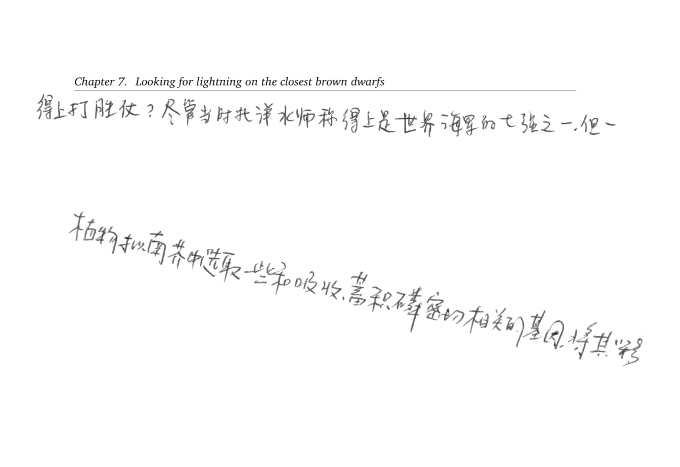 Chapter 7. Looking for lightning on the closest brown dwarfs
得上打胜仗?尽管当时北洋水师称得上是世界海军的七强之一.但一
植物拟南芥中选取一些和吸收、蓄积磷密切相关的基因.将其移